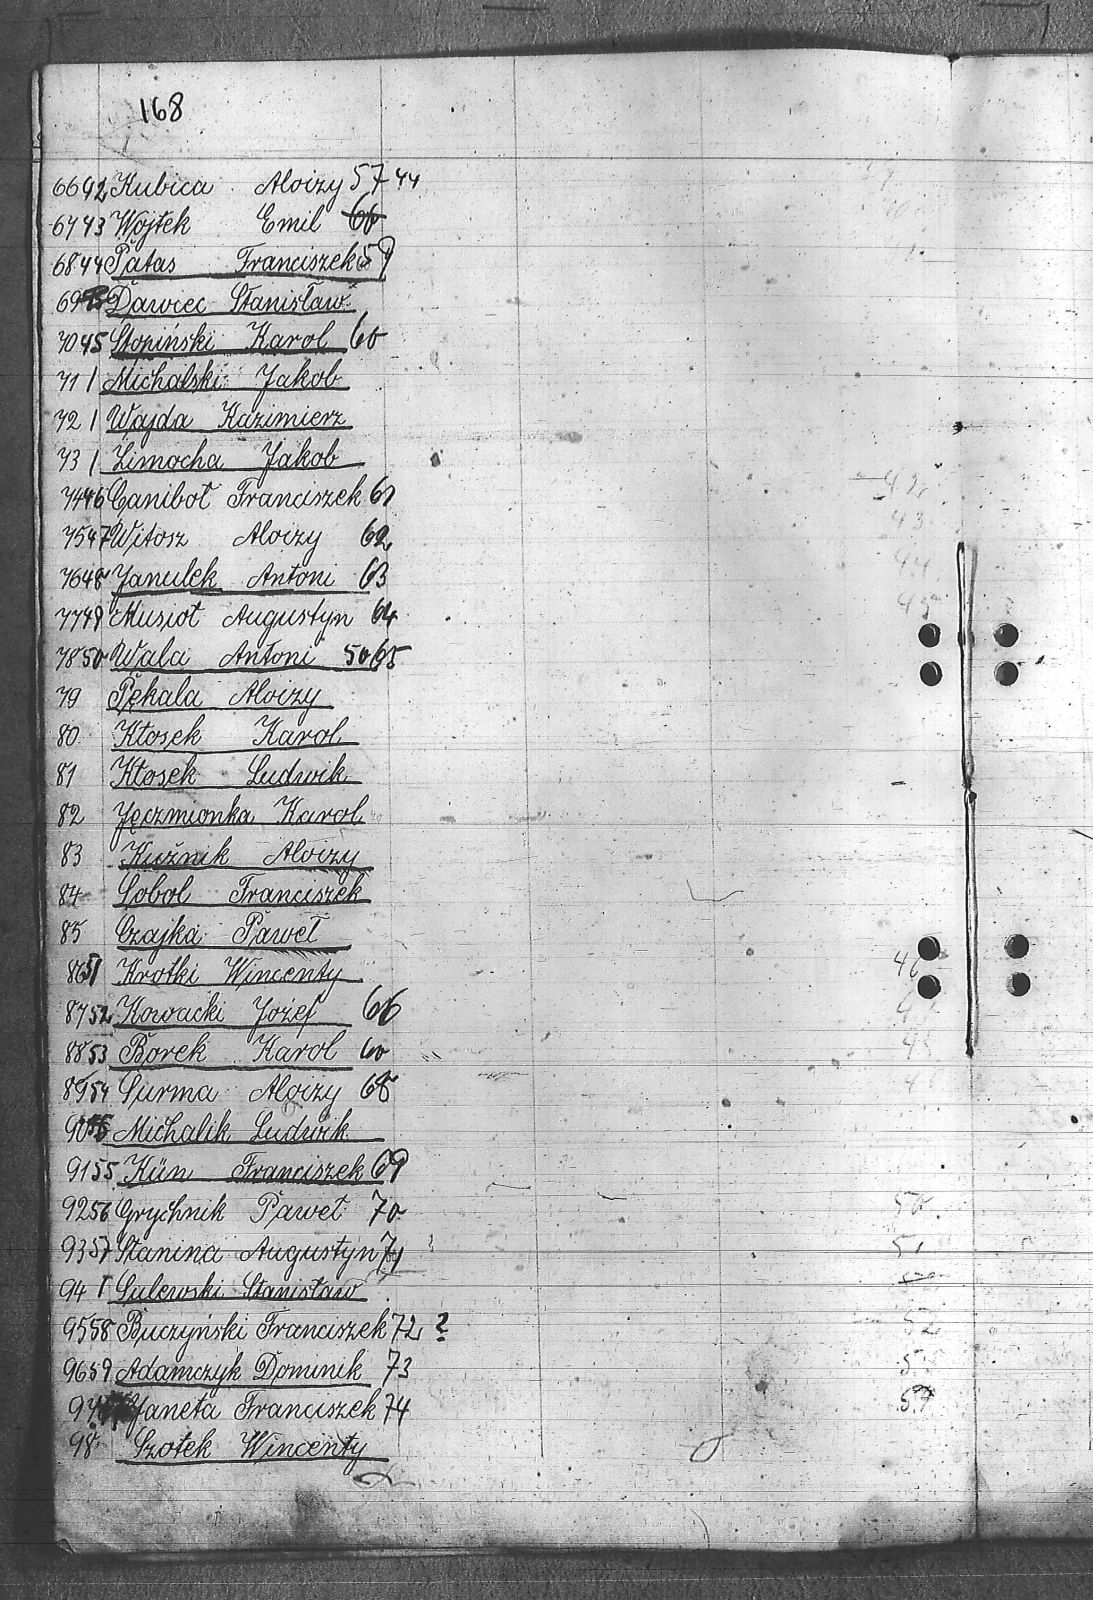 168
66 42 Kubica Aloizy 57 44
67 43 Wojtek Emil 60
68 44 Patas Franciszek 59
69 Dawiec Stanisław
70 45 Stopiński Karol 60
71 1 Michalski Jakob
72 1 Wajda Kazimierz
73 1 Zimocha Jakob
74 46 Ganibot Franciszek 61
75 47 Witosz Aloizy 62
76 48 Janulek Antoni 63
77 49 Musiot Augustyn 64
78 50 Wala Antoni 50 65
79 Pękala Aloizy
80 Kłosek Karol
81 Kłosek Ludwik
82 Jęczmionka Karol
83 Kuźnik Aloizy
84 Sobol Franciszek
85 Czajka Paweł
86 51 Krotki Wincenty
87 52 Kowacki Józef 66
88 53 Borek Karol
89 54 Surma Aloizy 68
90 Michalik Ludwik
91 55 Kün Franciszek 69
92 56 Grychnik Paweł 70
93 57 Stanina Augustyn 71
94 1 Sulewski Stanisław
95 58 Buczyński Franciszek 72 ?
96 59 Adamczyk Dominik 73
97 Janeta Franciszek 74
98 Szotek Wincenty
42
43
44
45
46
50
51
52